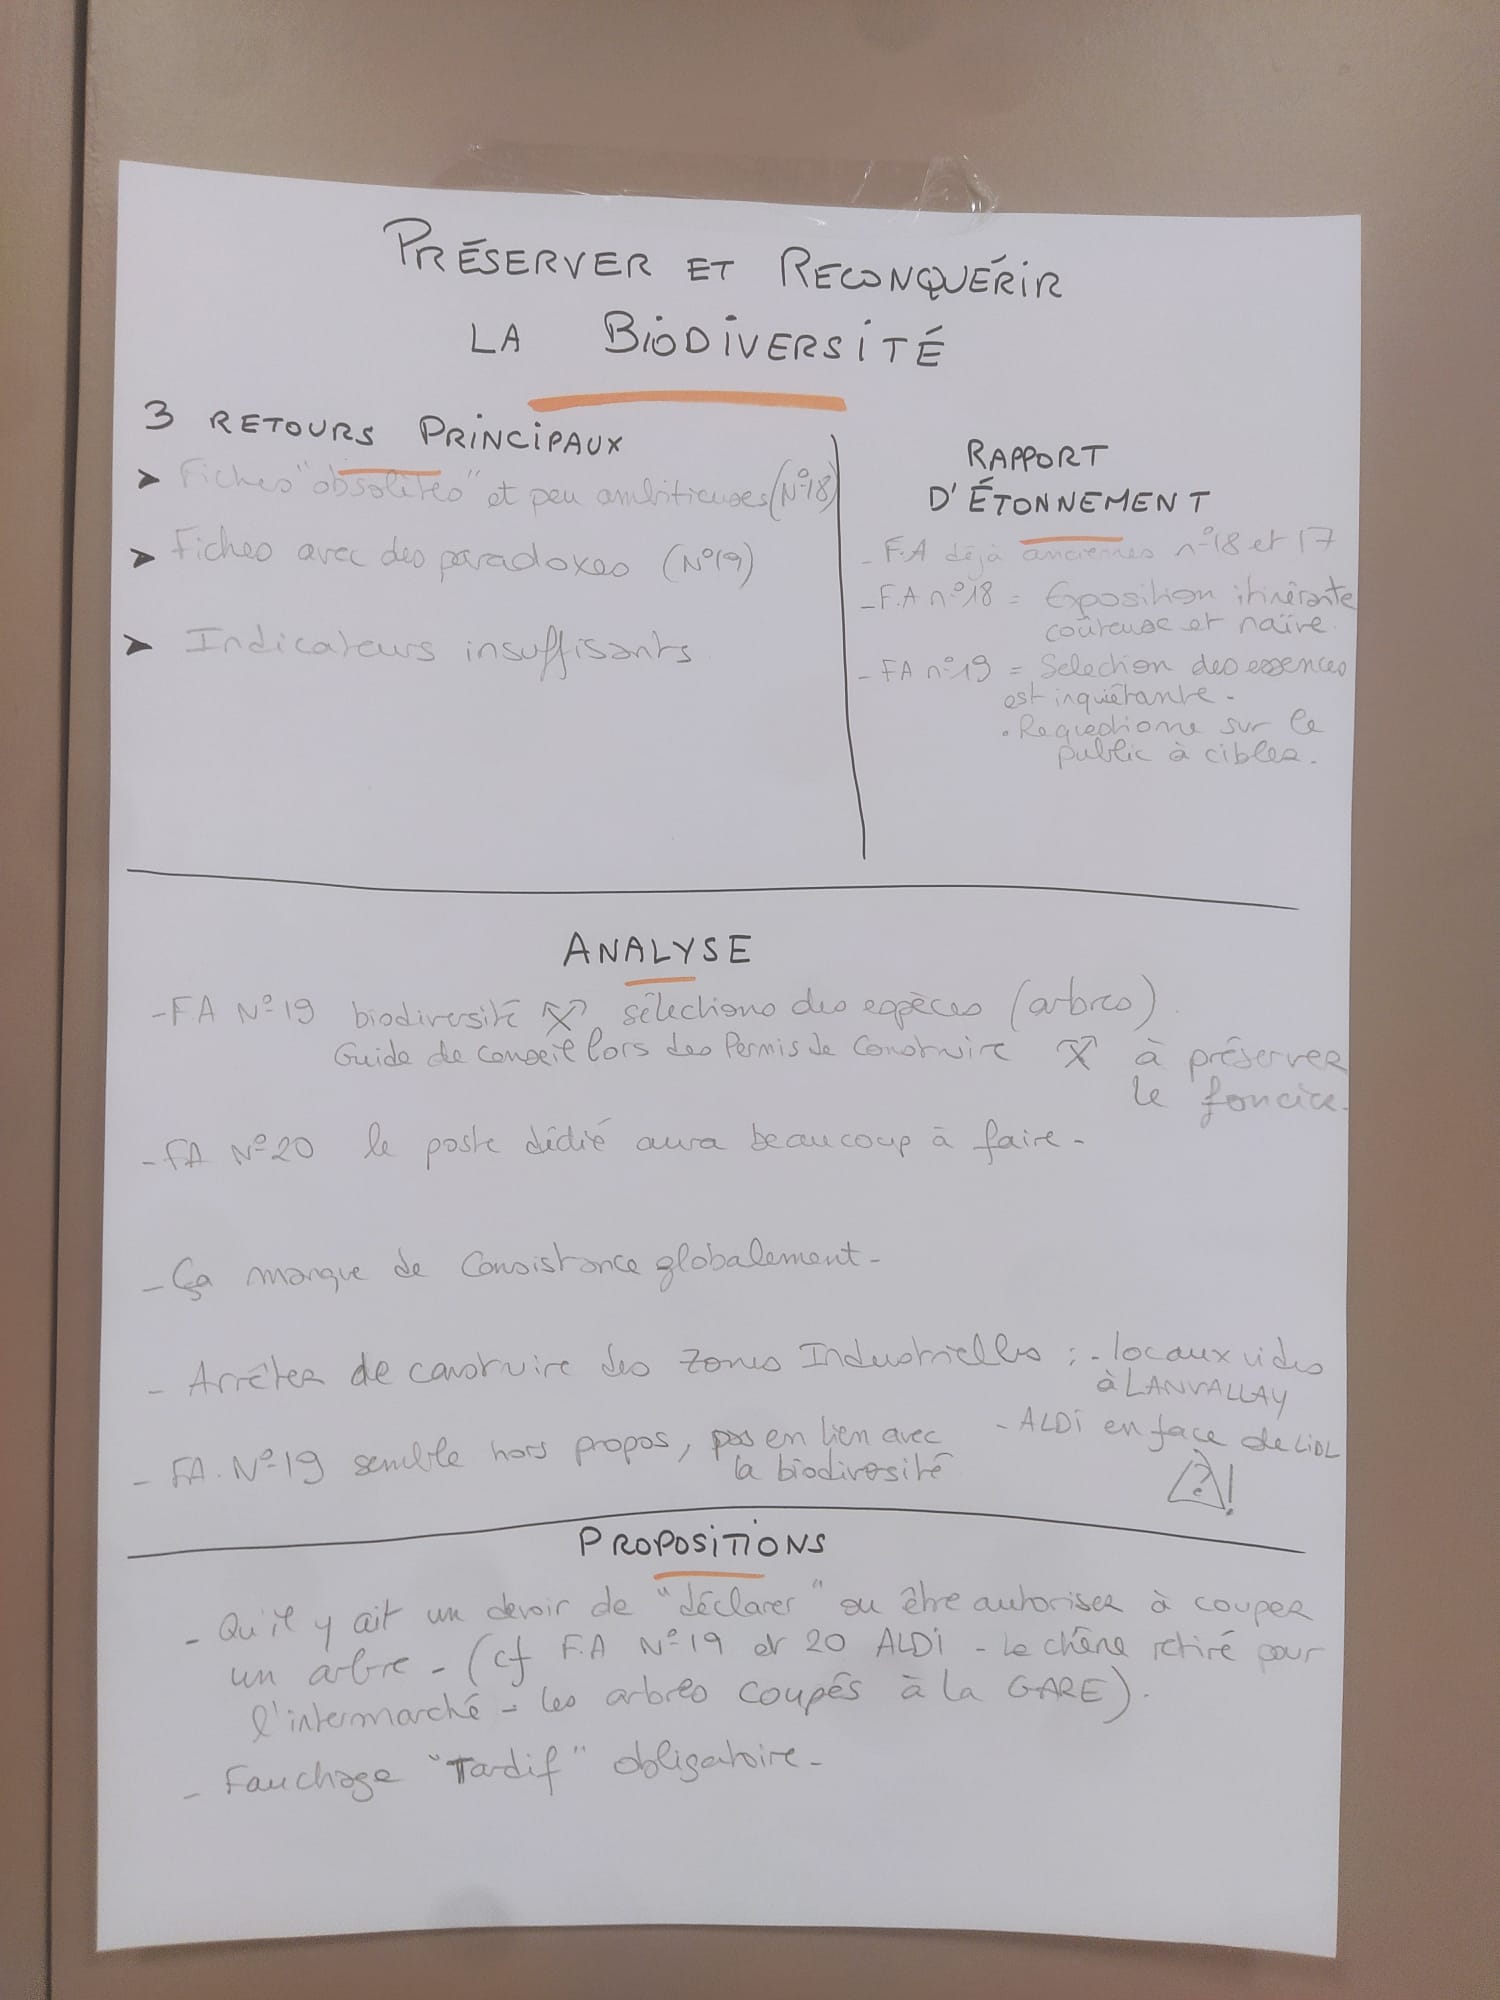 PRÉSERVER ET RECONQUÉRIR
LA BIODIVERSITÉ
3 RETOURS PRINCIPAUX
➤ Fiches "obsolètes" et peu ambitieuses (N°18)
➤ Fiches avec des paradoxes (N°19)
➤ Indicateurs insuffisants
RAPPORT
D'ÉTONNEMENT
- F.A déjà anciennes n°18 et 17
- F.A n°18 = Exposition itinérante
coûteuse et naïve.
- FA n°19 = Sélection des essences
est inquiétante.
• Requestionne sur le
public à cibler.
ANALYSE
- F.A N°19 biodiversité sélections des espèces (arbres)
Guide de conseil lors des Permis de Construire à préserver
le foncier.
- FA N°20 le poste dédié aura beaucoup à faire -
- Ça manque de consistance globalement -
- Arrêter de construire des zones Industrielles : - locaux vides
à LANVALLAY
- ALDI en face de LIDL
?!
- FA. N°19 semble hors propos, pas en lien avec
la biodiversité
PROPOSITIONS
- Qu'il y ait un devoir de "déclarer" ou être autoriser à couper
un arbre - (cf F.A N°19 et 20 ALDI - Le chêne retiré pour
l'intermarché - les arbres coupés à la GARE).
- Fauchage "Tardif" obligatoire -